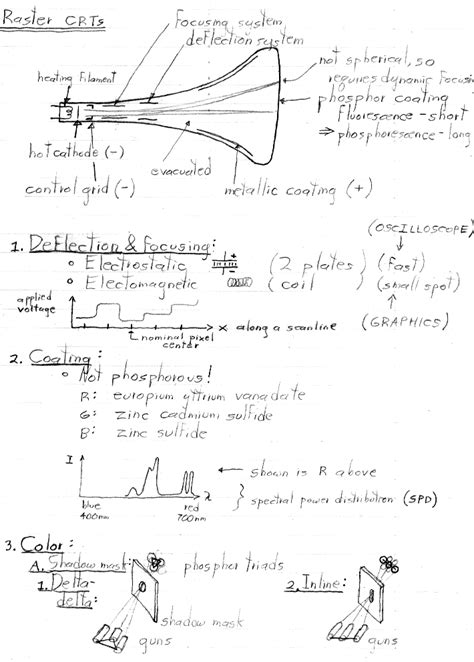 Raster CRTs
Focusing system
deflection system
heating filament
not spherical, so
requires dynamic focusing
phosphor coating
fluorescence - short
⇒ phosphorescence - long
hot cathode (-)
control grid (-)
evacuated
metallic coating (+)
(OSCILLOSCOPE)
1. Deflection & Focusing:
• Electrostatic (2 plates) (fast)
• Electomagnetic (coil) (small spot)
applied voltage
→ x along a scanline
(GRAPHICS)
nominal pixel center
2. Coating:
• Not phosphorous!
R: europium yttrium vanadate
G: zinc cadmium sulfide
B: zinc sulfide
I
← shown is R above
λ
} spectral power distribution (SPD)
blue 400nm
red 700nm
3. Color:
A. Shadow mask: phosphor triads
1. Delta-delta:
2. Inline:
shadow mask
guns
guns